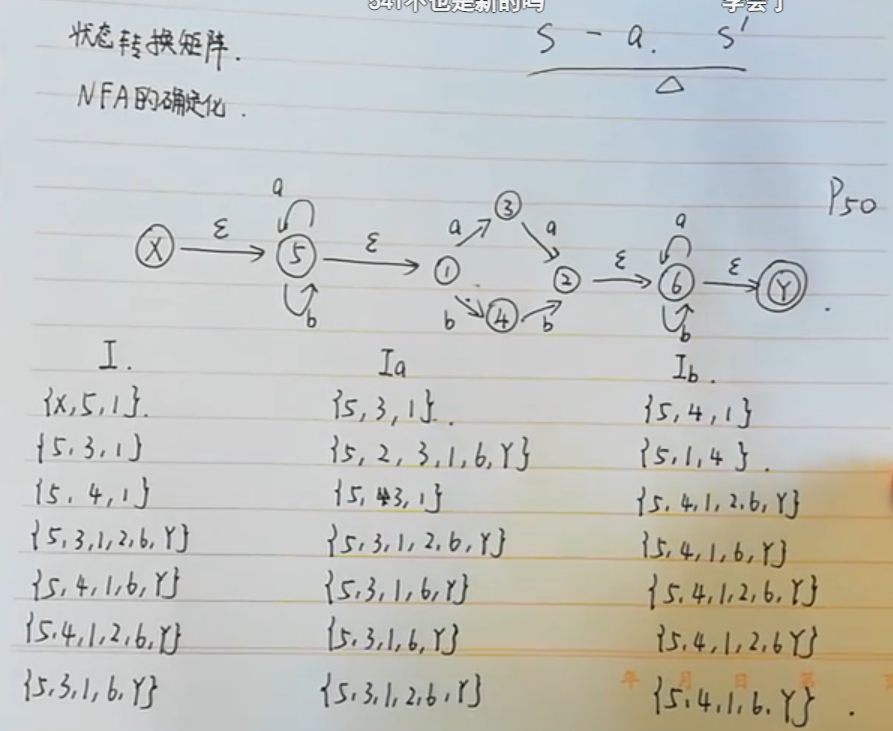 541不也是新的吗 学会了
状态转换矩阵.
S - a. S'
△
NFA的确定化.
P50
X ε 5 a b ε 1 a 3 a b 4 b 2 ε 6 a b ε Y
I. Ia Ib.
{X,5,1}. {5,3,1}. {5,4,1}
{5.3,1} {5,2,3,1,6,Y} {5,1,4}.
{5.4,1} {5,3,1} {5.4,1,2.6,Y}
{5.3,1,2,6,Y} {5.3,1,2.6,Y} {5.4,1,6,Y}
{5,4,1,6,Y} {5.3,1,6,Y} {5.4,1,2,6,Y}
{5.4,1,2,6,Y} {5.3,1,6,Y} {5.4,1,2,6Y}
{5,3,1,6.Y} {5.3,1,2.6,Y} {5.4,1,6.Y}.
年 月 日 第 页